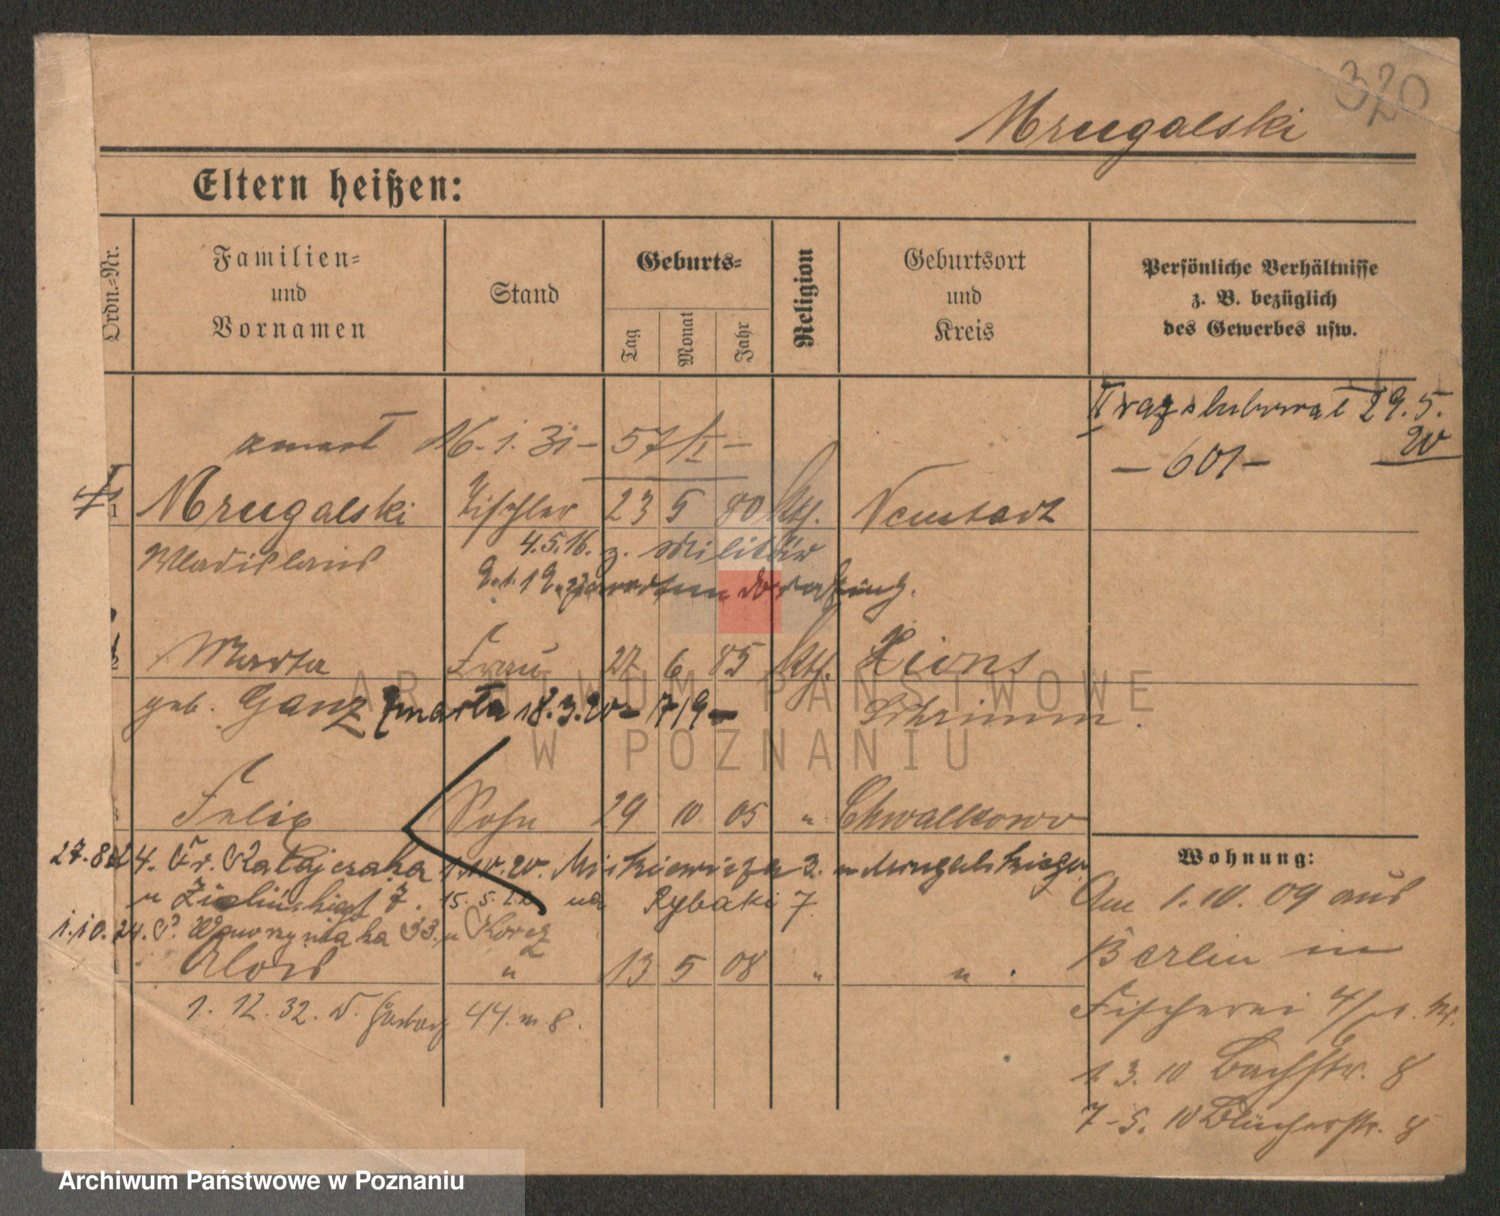 320
Mrugalski
Eltern heißen:
Ordn.-Nr.
Familien-
und
Vornamen
Stand
Geburts-
Tag
Monat
Jahr
Religion
Geburtsort
und
Kreis
Persönliche Verhältnisse
z. B. bezüglich
des Gewerbes usw.
29.5.
20
— 601 —
zmarł 16.1.31 — 57/I —
Mrugalski Tischler 23 5 80 kth. Neustadt
Wladislaus 4.5.16. z. Militär
Marta Frau 27 6 85 kth. Xions
geb. Ganz zmarła 18.3.20 — 719 — Schrimm.
Felix Sohn 29 10 05 " Chwalkowo
27.8.24. Fr. Ratajczaka 1.10.20. Mickiewicza 3. u Mrugalskiego
u Zielińskiej 7. 15.5.22 na Rybaki 7
1.10.24. Wawrzyniaka 33. u
Alois " 13 5 08 " " .
1.12.32. Garbary 44. m 8.
Wohnung:
Am 1.10.09 aus
Berlin in
Fischerei
1 3. 10 Bachstr. 8
7-5. 10 Blücherstr. 8
ARCHIWUM PAŃSTWOWE
W POZNANIU
Archiwum Państwowe w Poznaniu